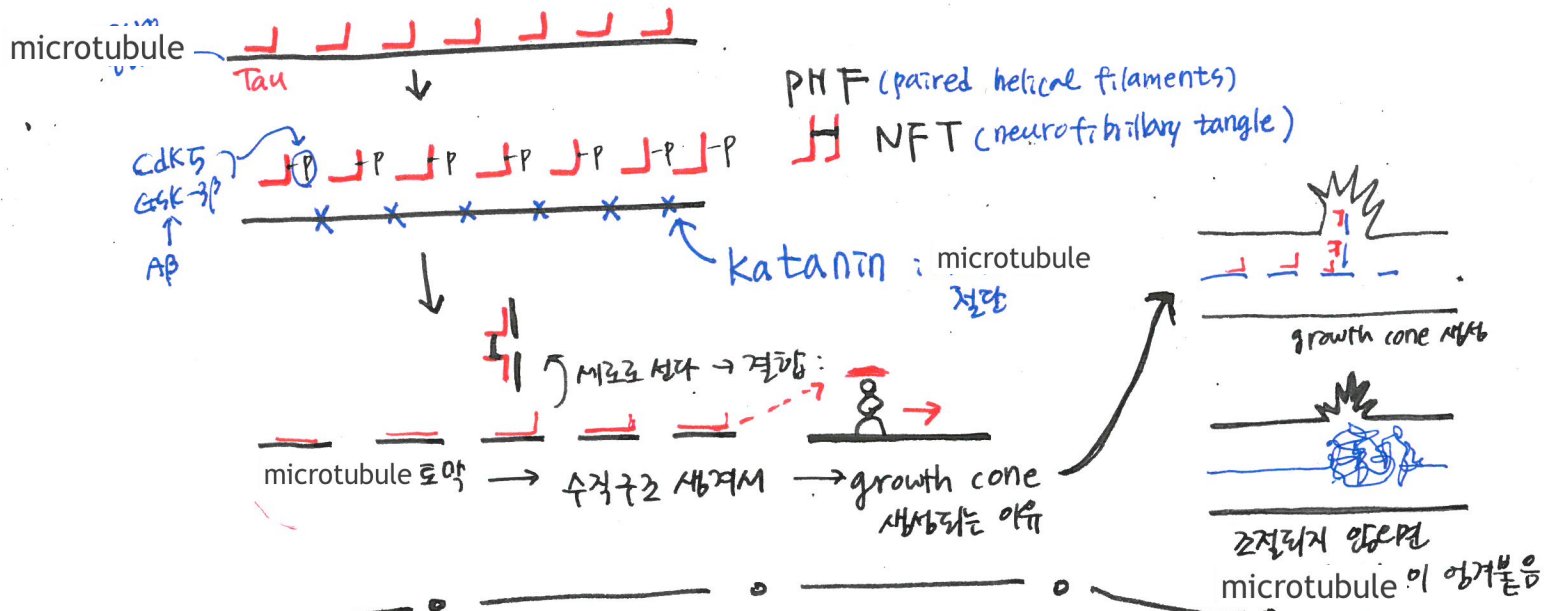 microtubule
Tau
PHF (paired helical filaments)
NFT (neurofibillary tangle)
Cdk5
GSK-3β
Aβ
-P -P -P -P -P -P -P
katanin : microtubule
절단
세로로 선다 → 결합 :
microtubule 토막 → 수직구조 생겨서 → growth cone
생성되는 이유
growth cone 생성
조절되지 않으면
microtubule이 엉겨붙음